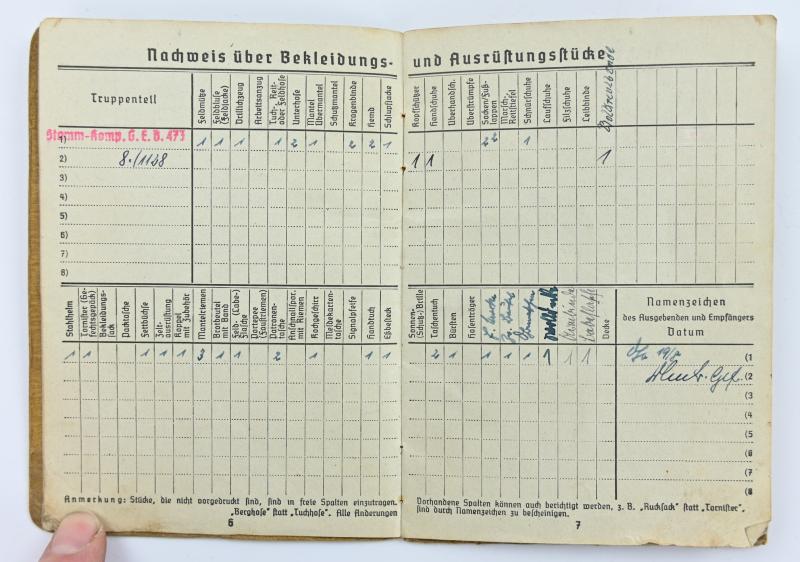 Nachweis über Bekleidungs- und Ausrüstungsstücke
Truppenteil
Feldmütze
Feldbluse (Feldjacke)
Drillichzeug
Arbeitsanzug
Tuch-, Reit- oder Feldhose
Unterhose
Mantel Übermantel
Schutzmantel
Kragenbinde
Hemd
Schlupfjacke
Kopfschützer
Handschuhe
Überhandsch.
Überstrümpfe
Socken/Fußlappen
Marsch-, Reitstiefel
Schnürschuhe
Laufschuhe
Filzschuhe
Leibbinde
Stamm-Komp. G.E.B. 473
1) 1 1 1 1 2 1 2 2 1 22 1
2) 8./1128 1 1 1
3)
4)
5)
6)
7)
8)
Stahlhelm
Tornister (Gefechtsgepäck)
Bekleidungssack
Packtasche
Fettbüchse
Zeltausrüstung
Koppel mit Zubehör
Mantelriemen
Brotbeutel mit Band
Feld- (Labe-) Flasche
Portepee (Faustriemen)
Patronentasche
Anschnallspor. mit Riemen
Kochgeschirr
Meldekartentasche
Signalpfeife
Handtuch
Eßbesteck
Sonnen- (Schutz-) Brille
Taschentuch
Bürsten
Hosenträger
Decke
Namenzeichen
des Ausgebenden und Empfängers
Datum
1 1 1 1 1 3 1 1 2 1 1 1 2 1 1 1 1 1 1 1 (1
(2
(3
(4
(5
(6
(7
(8
Anmerkung: Stücke, die nicht vorgedruckt sind, sind in freie Spalten einzutragen.
„Berghose" statt „Tuchhose". Alle Änderungen
6
Vorhandene Spalten können auch berichtigt werden, z. B. „Rucksack" statt „Tornister",
sind durch Namenzeichen zu bescheinigen.
7